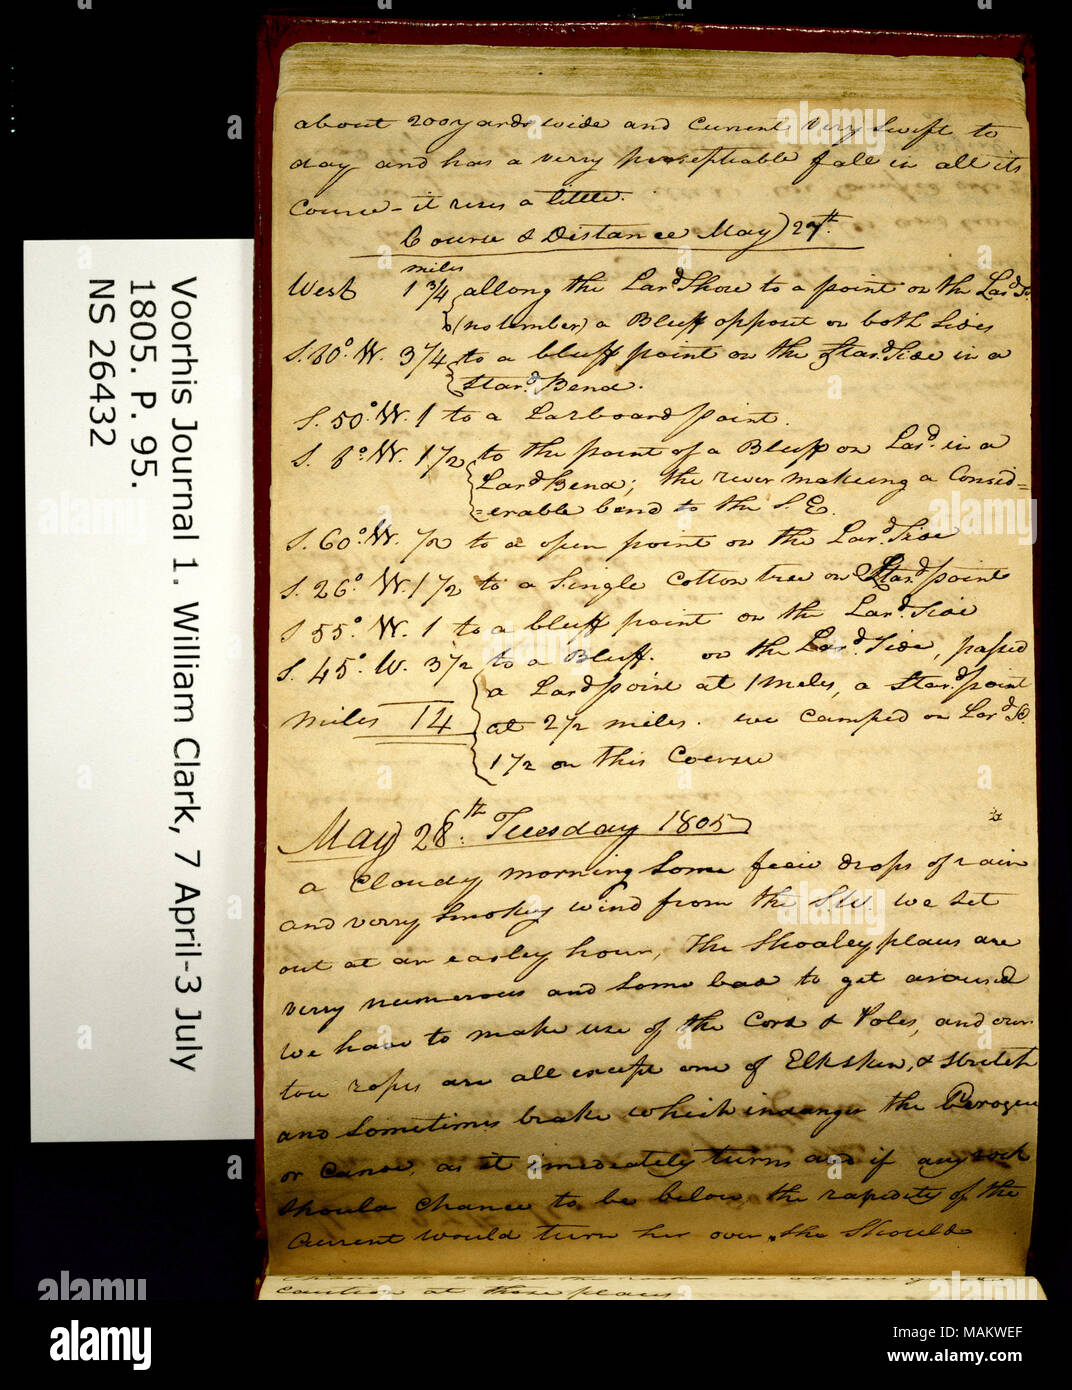 about 200 yards wide and Current very Swift to
day and has a verry perseptiable fall in all its
Course – it rises a little.
Course & Distance May 27th.
miles
West 1 3/4 allong the Lard. Shore to a point on the Lard. Sd.
(no timber) a Bluff opposit on both Sides
S. 80° W. 3/4 to a bluff point on the Stard. Side in a
Stard. Bend.
S. 50° W. 1 to a Larboard point.
S. 8° W. 1 1/2 to the point of a Bluff on Lard. in a
Lard. Bend; the river makeing a Consid=
=erable bend to the S. E.
S. 60° W. 1/2 to a open point on the Lard. Side
S. 26° W. 1 1/2 to a Single Cotton tree on Stard. point
S 55° W. 1 to a bluff point on the Lard. Side
S. 45° W. 3 1/2 to a Bluff. on the Lard. Side, passed
a Lard. point at 1 Mile, a Stard. point
miles 14 at 2 1/2 miles. we camped on Lard. Sd.
1 1/2 on this Course
May 28th. Tuesday 1805
a Cloudy morning Some fiew drops of rain
and verry Smokey wind from the S.W. we set
out at an earley hour, the Shoaley places are
verry numerous and Some bad to get around
we have to make use of the Cord & Poles, and our
tow ropes are all except one of Elkskin, & Stretch
and Sometimes brake which indanger the Perogue
or Canoe, as it imediately turns and if any rock
Should Chance to be below the rapidity of the
Current would turn her over, She Should
caution at those places
Voorhis Journal 1. William Clark, 7 April-3 July
1805. P. 95.
NS 26432
alamy
a
Image ID: MAKWEF
www.alamy.com